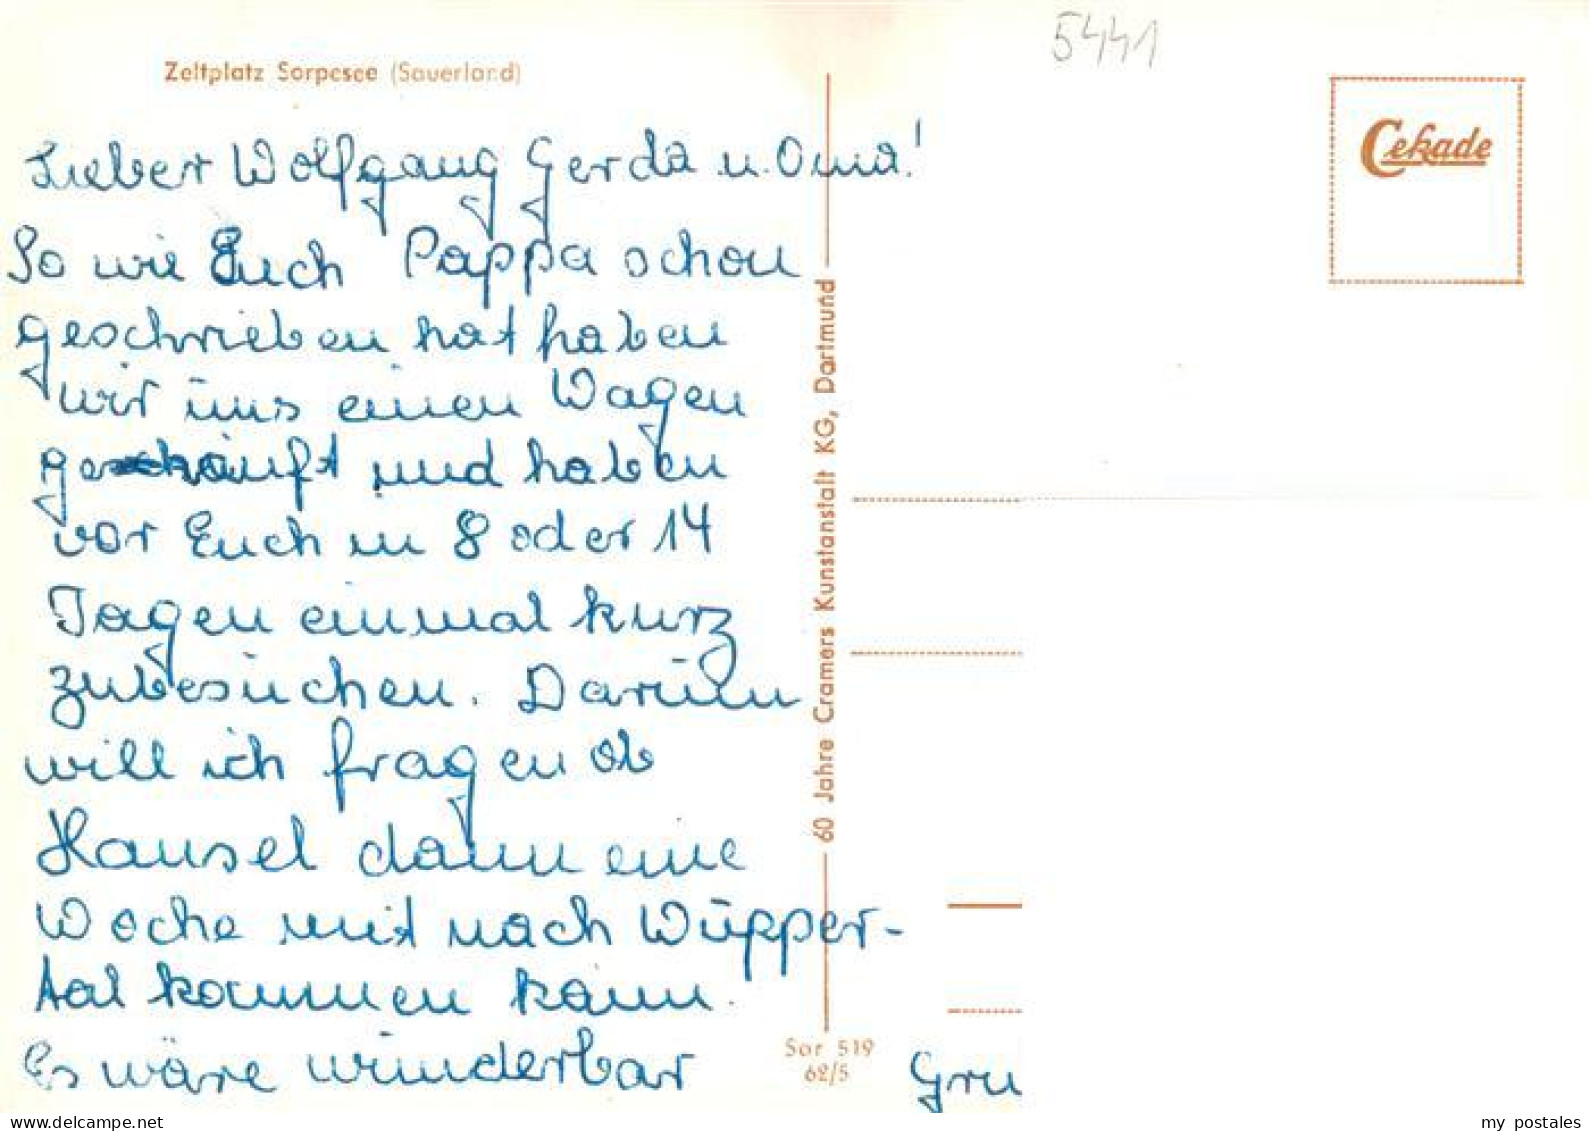 5441
Zeltplatz Sorpesee (Sauerland)
Cekade
Lieber Wolfgang Gerda u. Oma!
So wie Euch Pappa schon
geschrieben hat haben
wir uns einen Wagen
gekauft und haben
vor Euch in 8 oder 14
Tagen einmal kurz
zubesuchen. Darum
will ich fragen ob
Hansel dann eine
Woche mit nach Wupper-
tal kommen kann.
Es wäre wunderbar
Gru
60 Jahre Cramers Kunstanstalt KG, Dortmund
Sor 519
62/5
my postales